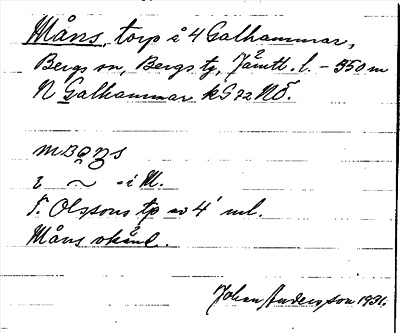 Måns, torp å 4 Galhammar,
Bergs sn, Bergs tg, Jämtl. l. - 550 m
N Galhammar kG 72 NÖ.
i ~ - i M.
F. Olssons tp av 4 ml.
Måns okänd.
Johan Anderson 1931.